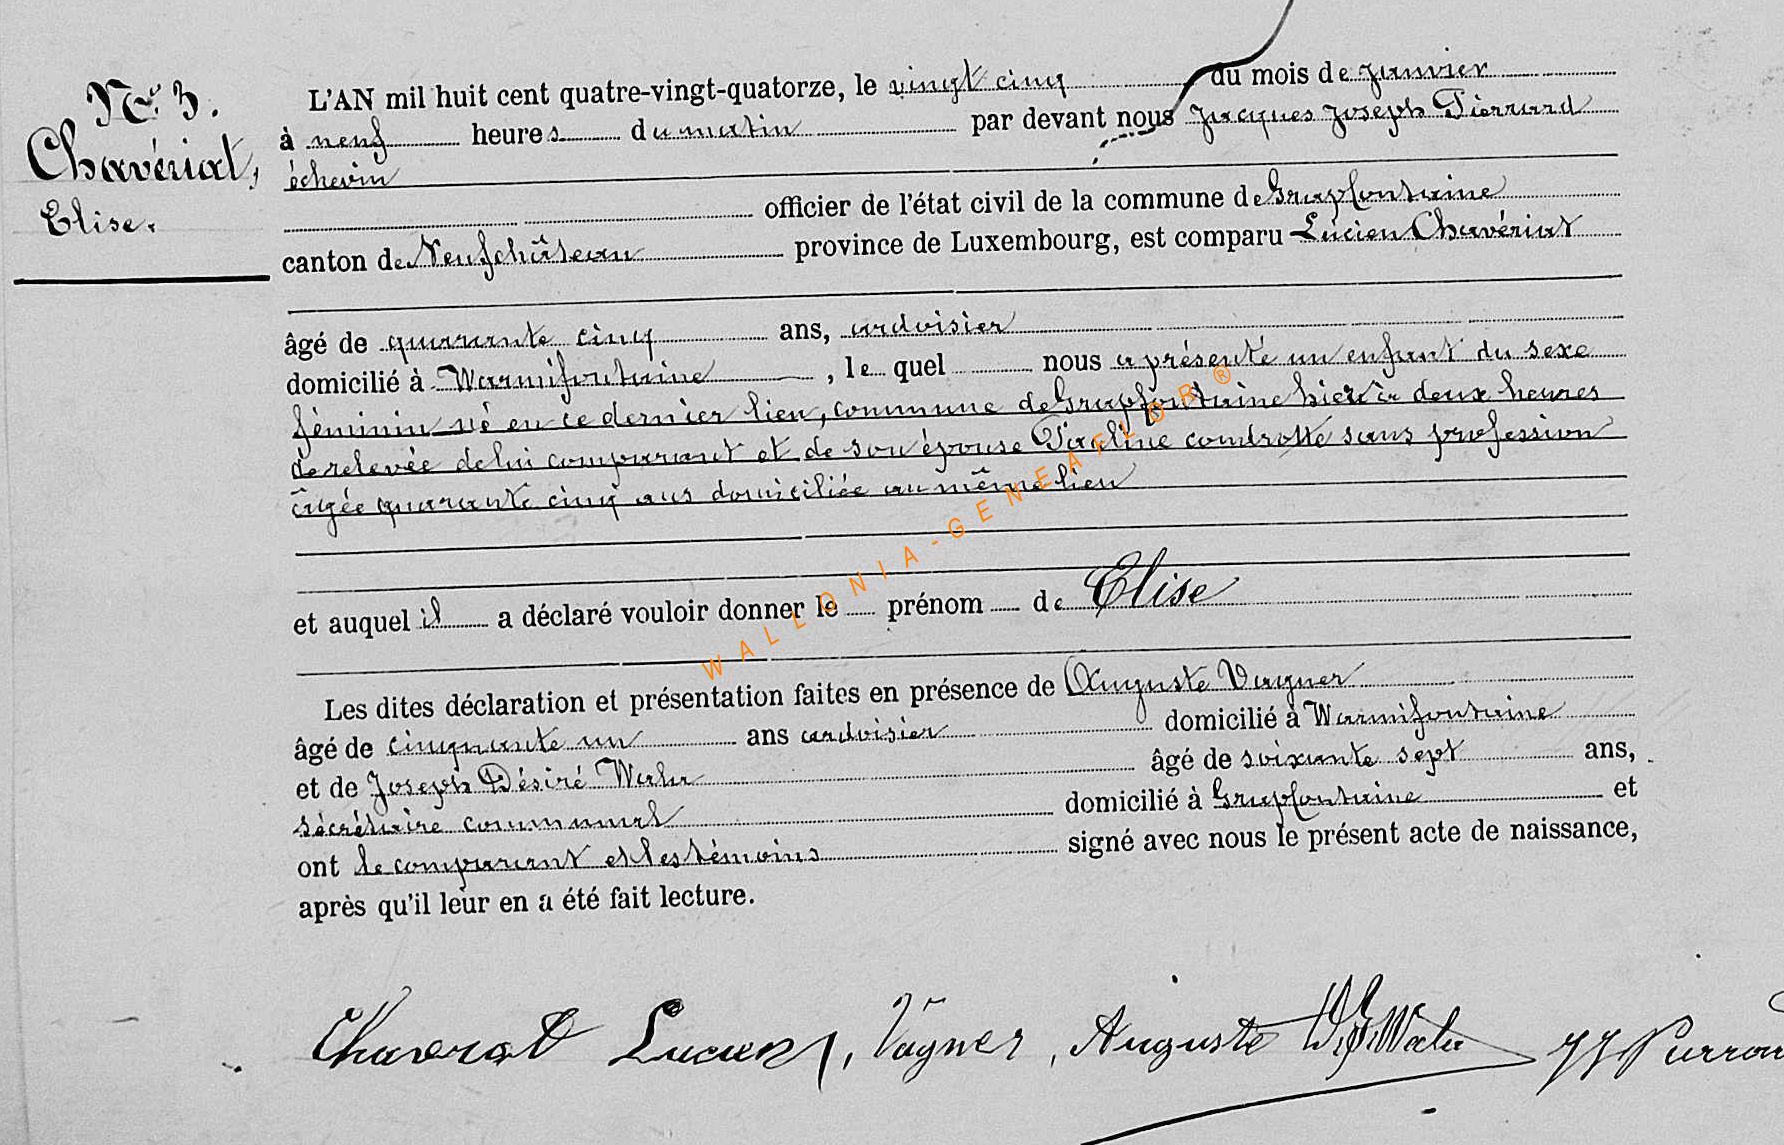 N° 3.
Chavériat,
Elise.
L'AN mil huit cent quatre-vingt-quatorze, le vingt cinq du mois de janvier
à neuf heures du matin par devant nous Jacques Joseph Pierrard
échevin
officier de l'état civil de la commune de Grapfontaine
canton de Neufchâteau province de Luxembourg, est comparu Lucien Chavériat
âgé de quarante cinq ans, ardoisier
domicilié à Warmifontaine, le quel nous a présenté un enfant du sexe
féminin né en ce dernier lieu, commune de Grapfontaine hier à deux heures
de relevée de lui comparant et de son épouse Pauline condrotte sans profession
âgée quarante cinq ans domiciliée au même lieu
et auquel il a déclaré vouloir donner le prénom de Elise
Les dites déclaration et présentation faites en présence de Auguste Vagner
âgé de cinquante un ans ardoisier domicilié à Warmifontaine
et de Joseph Désiré Walu âgé de soixante sept ans,
sécrétaire communal domicilié à Grapfontaine et
ont le comparant et les témoins signé avec nous le présent acte de naissance,
après qu'il leur en a été fait lecture.
Chaverat Lucien, Vagner, Auguste Walu JJ Pierrard
WALLONIA-GENEAFLOR®